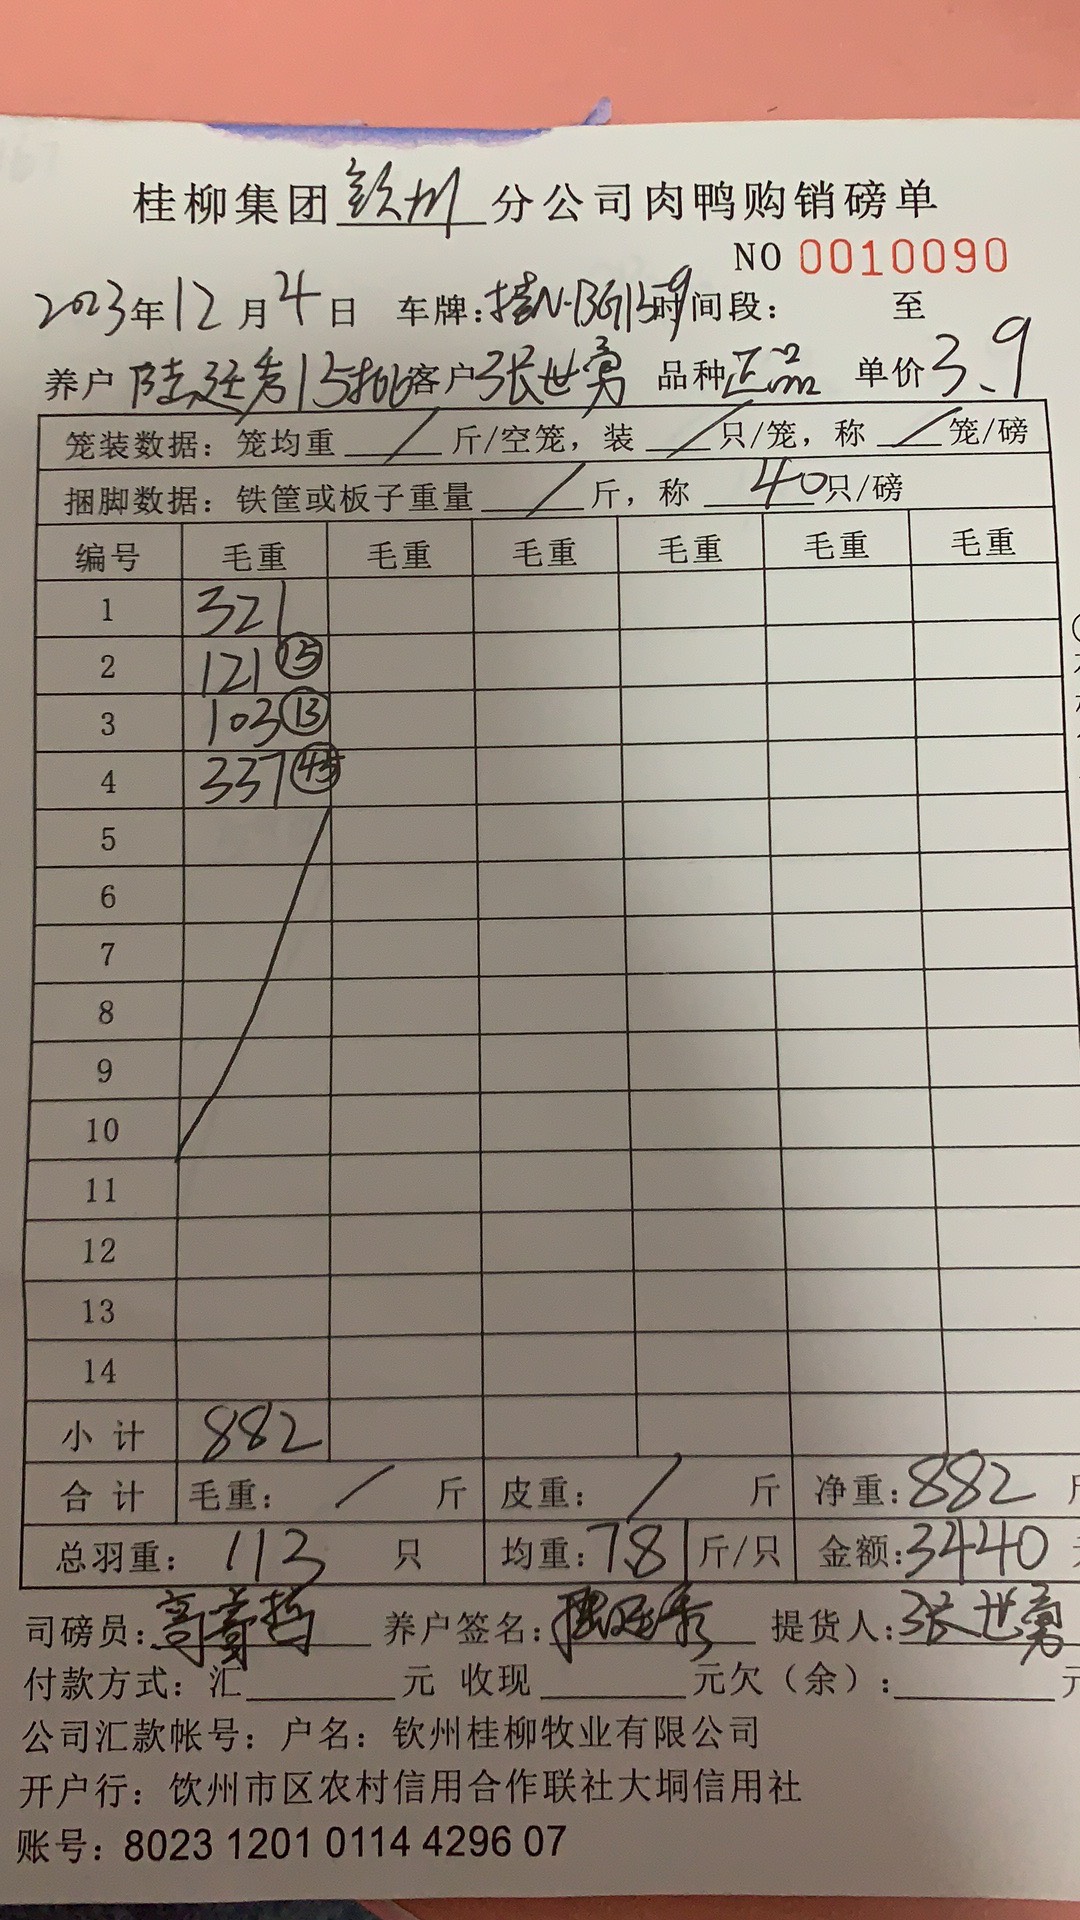 桂柳集团钦州分公司肉鸭购销磅单
NO 0010090
2023年12月4日 车牌:桂N·BG159时间段: 至
养户 陆廷秀15批客户张世勇 品种正品 单价3.9
笼装数据:笼均重 / 斤/空笼,装 / 只/笼,称 / 笼/磅
捆脚数据:铁筐或板子重量 / 斤,称 40只/磅
编号 毛重 毛重 毛重 毛重 毛重 毛重
1 321
2 121 ⑮
3 103 ⑬
4 337 ㊺
5
6
7
8
9
10
11
12
13
14
小计 882
合计 毛重: / 斤 皮重: / 斤 净重:882
总羽重: 113 只 均重:7.81斤/只 金额:3440
司磅员: 养户签名:陆廷秀 提货人:张世勇
付款方式:汇 元 收现 元欠(余): 元
公司汇款帐号:户名:钦州桂柳牧业有限公司
开户行:钦州市区农村信用合作联社大垌信用社
账号:8023 1201 0114 4296 07